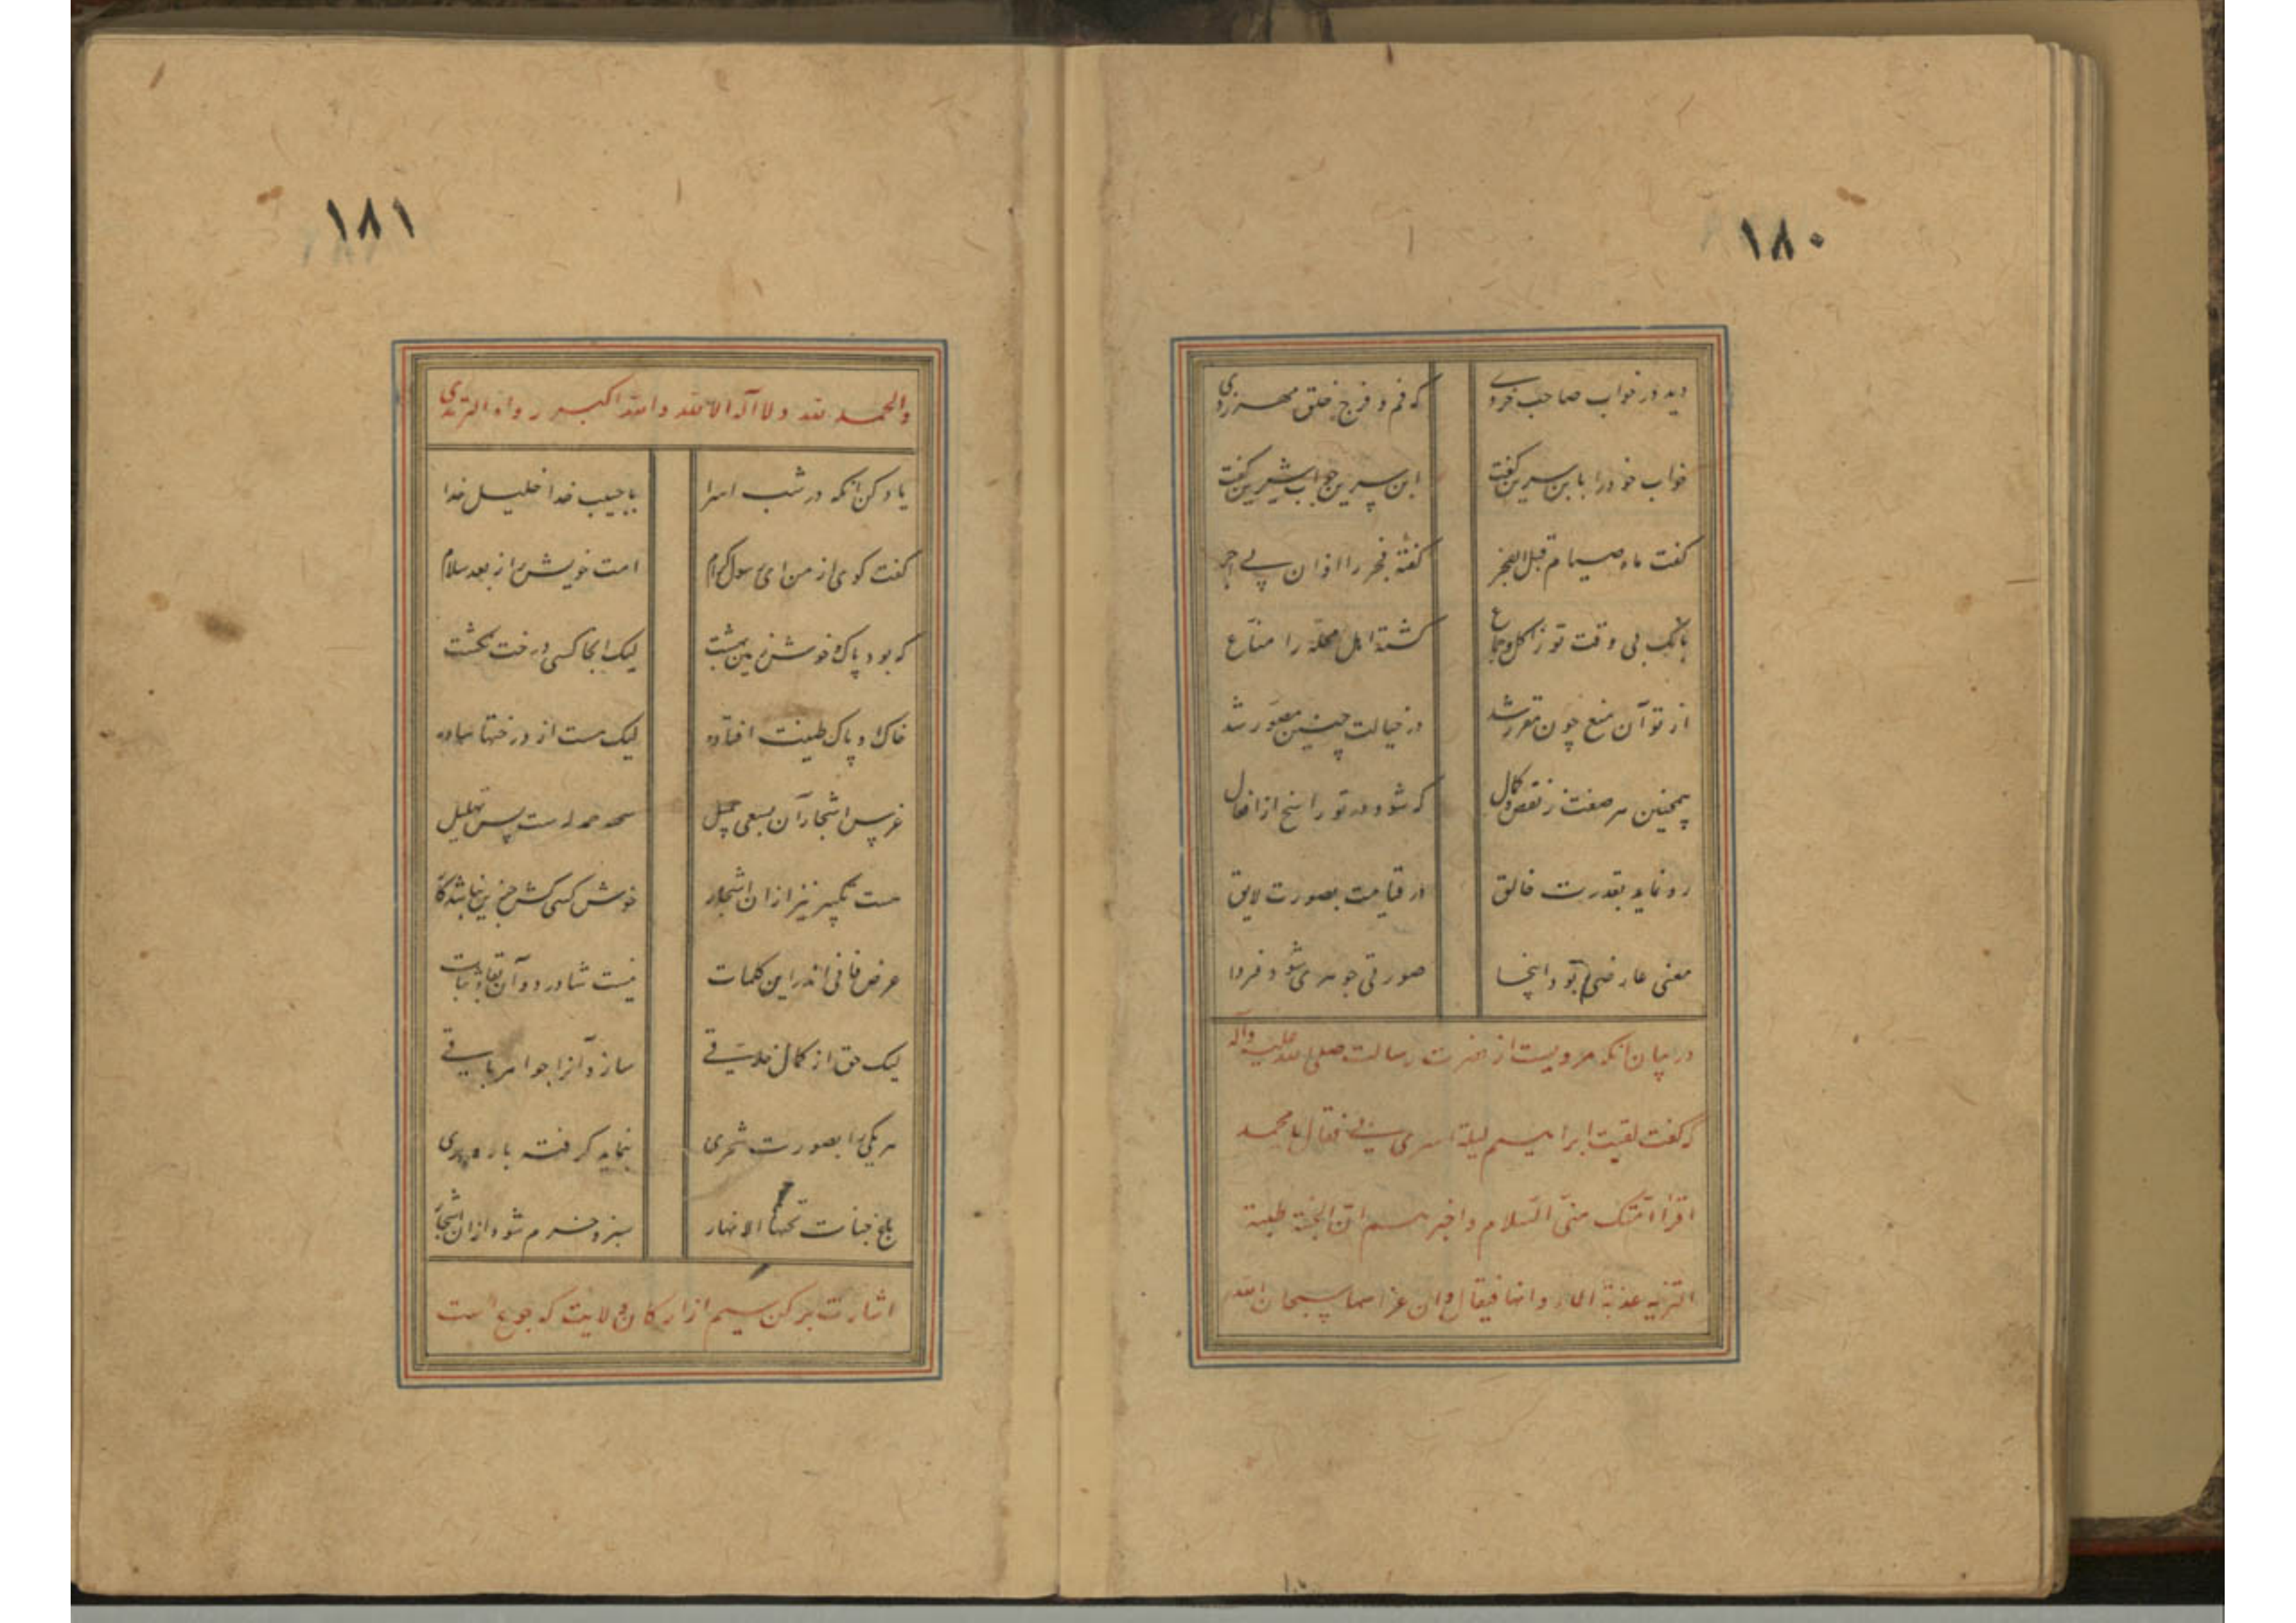 ۱۸۰
دید در خواب صاحب خردی که فم و فرج خلق مهر زدی
خواب خود را با بن سیرین گفت ابن سیرین جواب شیرین گفت
گفت ماه صیام قبل الفجر گفتهٔ فجر را اذان پی اجر
بانگ بی وقت تو ز اکل و جماع گشته اهل محله را مناع
از تو آن منع چون مقرر شد در خیالت چنین مصور شد
همچنین هر صفت ز نقص و کمال که شود در تو راسخ از افعال
رو نماید بقدرت خالق در قیامت بصورت لایق
معنی عارضی بود اینجا صورتی جوهری شود فردا
در بیان آنکه مرویست از حضرت رسالت صلی الله علیه وآله
که گفت لقیت ابراهیم لیلة اسری بی فقال یا محمد
اقرأ امتک منی السلام واخبرهم ان الجنة طیبة
التربة عذبة الماء وانها قیعان وان غراسها سبحان الله
۱۸۱
والحمد لله ولا اله الا الله والله اکبر رواه الترمذی
یاد کن آنکه در شب اسرا با حبیب خدا خلیل خدا
گفت کوی از من ای رسول کرام امت خویش را ز بعد سلام
که بود پاک و خوش زمین بهشت لیک آنجا کسی درخت نکشت
خاک او پاک طینت افتاده لیک هست از درختها ساده
غرس اشجار آن بسعی جمیل حمدله است پس تهلیل
هست تکبیر نیز از ان اشجار خوش کسی کش جز این نباشد کار
عرض فانی اند این کلمات نیست شان در دو آن بقا و ثبات
لیک حق از کمال خلاقی سازد آنرا جواهر باقی
هر یکی را بصورت شجری بنماید گرفته بار و بری
باغ جنات تحتها الانهار سبز و خرم شود از ان اشجار
اشارت برکن سیم از ارکان ولایت که جوع است